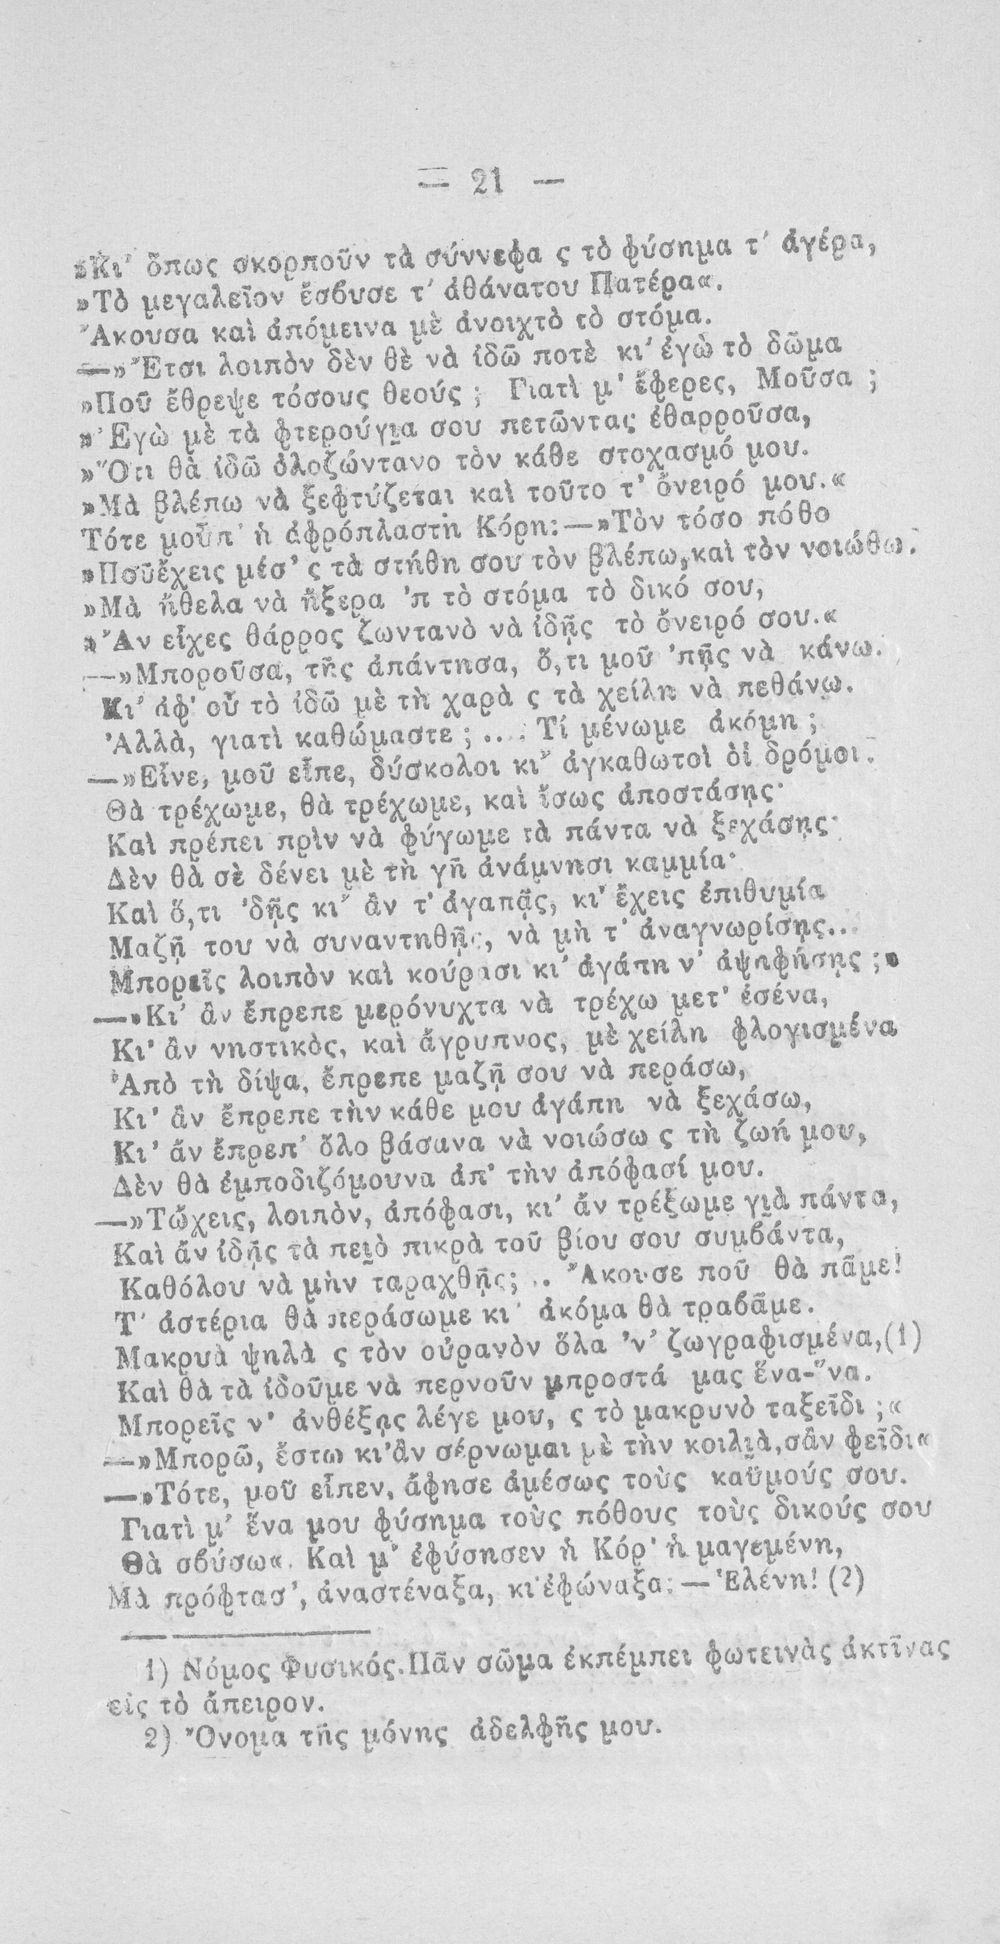 — 21 —
»Κι' ὅπως σκορποῦν τὰ σύννεφα ς τὸ φύσημα τ' ἀγέρα,
»Τὸ μεγαλεῖον ἔσβυσε τ' ἀθάνατου Πατέρα«.
Ἄκουσα καὶ ἀπόμεινα μὲ ἀνοιχτὸ τὸ στόμα.
—»Ἔτσι λοιπὸν δὲν θὲ νὰ ἰδῶ ποτὲ κι' ἐγὼ τὸ δῶμα
»Ποῦ ἔθρεψε τόσους θεούς ; Γιατὶ μ' ἔφερες, Μοῦσα ;
»Ἐγὼ μὲ τὰ φτερούγια σου πετῶντας ἐθαρροῦσα,
»Ὅτι θὰ ἰδῶ ὁλοζώντανο τὸν κάθε στοχασμό μου.
»Μὰ βλέπω νὰ ξεφτύζεται καὶ τοῦτο τ' ὄνειρό μου.«
Τότε μοῦπ' ἡ ἀφρόπλαστη Κόρη:—»Τὸν τόσο πόθο
»Ποῦἔχεις μέσ' ς τὰ στήθη σου τὸν βλέπω,καὶ τὸν νοιώθω.
»Μὰ ἤθελα νὰ ἤξερα 'π τὸ στόμα τὸ δικό σου,
»Ἂν εἶχες θάρρος ζωντανὸ νὰ ἰδῇς τὸ ὄνειρό σου.«
—»Μποροῦσα, τῆς ἀπάντησα, ὅ,τι μοῦ 'πῇς νὰ κάνω.
Κι' ἀφ' οὗ τὸ ἰδῶ μὲ τὴ χαρὰ ς τὰ χείλη νὰ πεθάνω.
Ἀλλὰ, γιατὶ καθώμαστε ; .... Τί μένωμε ἀκόμη ;
—»Εἶνε, μοῦ εἶπε, δύσκολοι κι' ἀγκαθωτοὶ οἱ δρόμοι.
Θὰ τρέχωμε, θὰ τρέχωμε, καὶ ἴσως ἀποστάσῃς·
Καὶ πρέπει πρὶν νὰ φύγωμε τὰ πάντα νὰ ξεχάσῃς·
Δὲν θὰ σὲ δένει μὲ τὴ γῆ ἀνάμνησι καμμία·
Καὶ ὅ,τι 'δῇς κι' ἂν τ' ἀγαπᾷς, κι' ἔχεις ἐπιθυμία
Μαζῆ του νὰ συναντηθῇς, νὰ μὴ τ' ἀναγνωρίσῃς...
Μπορεῖς λοιπὸν καὶ κούρασι κι' ἀγάπη ν' ἀψηφήσῃς ;»
—»Κι' ἂν ἔπρεπε μερόνυχτα νὰ τρέχω μετ' ἐσένα,
Κι' ἂν νηστικὸς, καὶ ἄγρυπνος, μὲ χείλη φλογισμένα
Ἀπὸ τὴ δίψα, ἔπρεπε μαζῆ σου νὰ περάσω,
Κι' ἂν ἔπρεπε τὴν κάθε μου ἀγάπη νὰ ξεχάσω,
Κι' ἂν ἔπρεπ' ὅλο βάσανα νὰ νοιώσω ς τὴ ζωή μου,
Δὲν θὰ ἐμποδιζόμουνα ἀπ' τὴν ἀπόφασί μου.
—»Τὤχεις, λοιπὸν, ἀπόφασι, κι' ἂν τρέξωμε γιὰ πάντα,
Καὶ ἂν ἰδῇς τὰ πειὸ πικρὰ τοῦ βίου σου συμβάντα,
Καθόλου νὰ μὴν ταραχθῇς; .. Ἄκουσε ποῦ θὰ πᾶμε!
Τ' ἀστέρια θὰ περάσωμε κι' ἀκόμα θὰ τραβᾶμε.
Μακρυὰ ψηλὰ ς τὸν οὐρανὸν ὅλα 'ν' ζωγραφισμένα,(1)
Καὶ θὰ τὰ ἰδοῦμε νὰ περνοῦν μπροστά μας ἕνα-ἕνα.
Μπορεῖς ν' ἀνθέξῃς λέγε μου, ς τὸ μακρυνὸ ταξεῖδι ;«
—»Μπορῶ, ἔστω κι'ἂν σέρνωμαι μὲ τὴν κοιλιὰ,σὰν φεῖδι«
—»Τότε, μοῦ εἶπεν, ἄφησε ἀμέσως τοὺς καϋμούς σου.
Γιατὶ μ' ἕνα μου φύσημα τοὺς πόθους τοὺς δικούς σου
Θὰ σβύσω«. Καὶ μ' ἐφύσησεν ἡ Κόρ' ἡ μαγεμένη,
Μὰ πρόφτασ', ἀναστέναξα, κι'ἐφώναξα: — Ἑλένη! (2)
1) Νόμος Φυσικός.Πᾶν σῶμα ἐκπέμπει φωτεινὰς ἀκτῖνας
εἰς τὸ ἄπειρον.
2) Ὄνομα τῆς μόνης ἀδελφῆς μου.